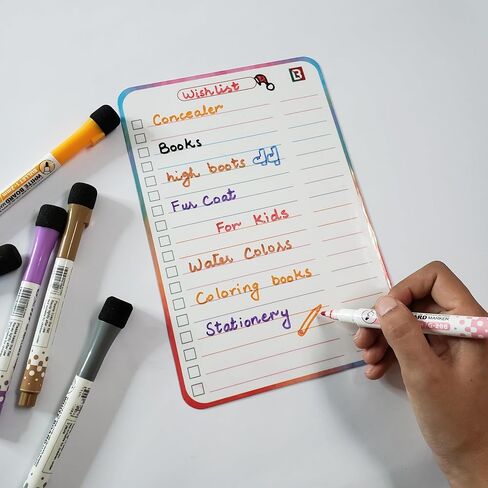 Wishlist
Concealer
Books
high boots
Fur Coat
For Kids
Water Colors
Coloring books
Stationery
WHITE BOARD
MARKER
G-206